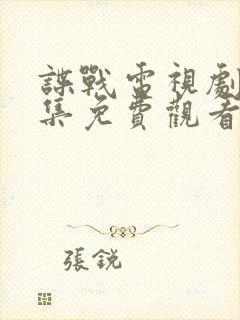 諜戰電視劇
集免費觀看
張銳